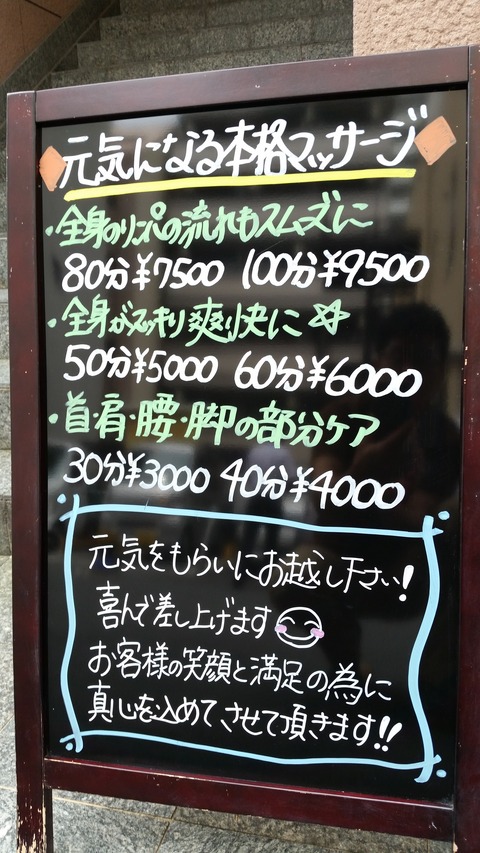 元気になる本格マッサージ
・全身のリンパの流れもスムーズに
80分¥7500 100分¥9500
・全身がスッキリ爽快に☆
50分¥5000 60分¥6000
・首・肩・腰・脚の部分ケア
30分¥3000 40分¥4000
元気をもらいにお越し下さい!
喜んで差し上げます
お客様の笑顔と満足の為に
真心を込めてさせて頂きます!!